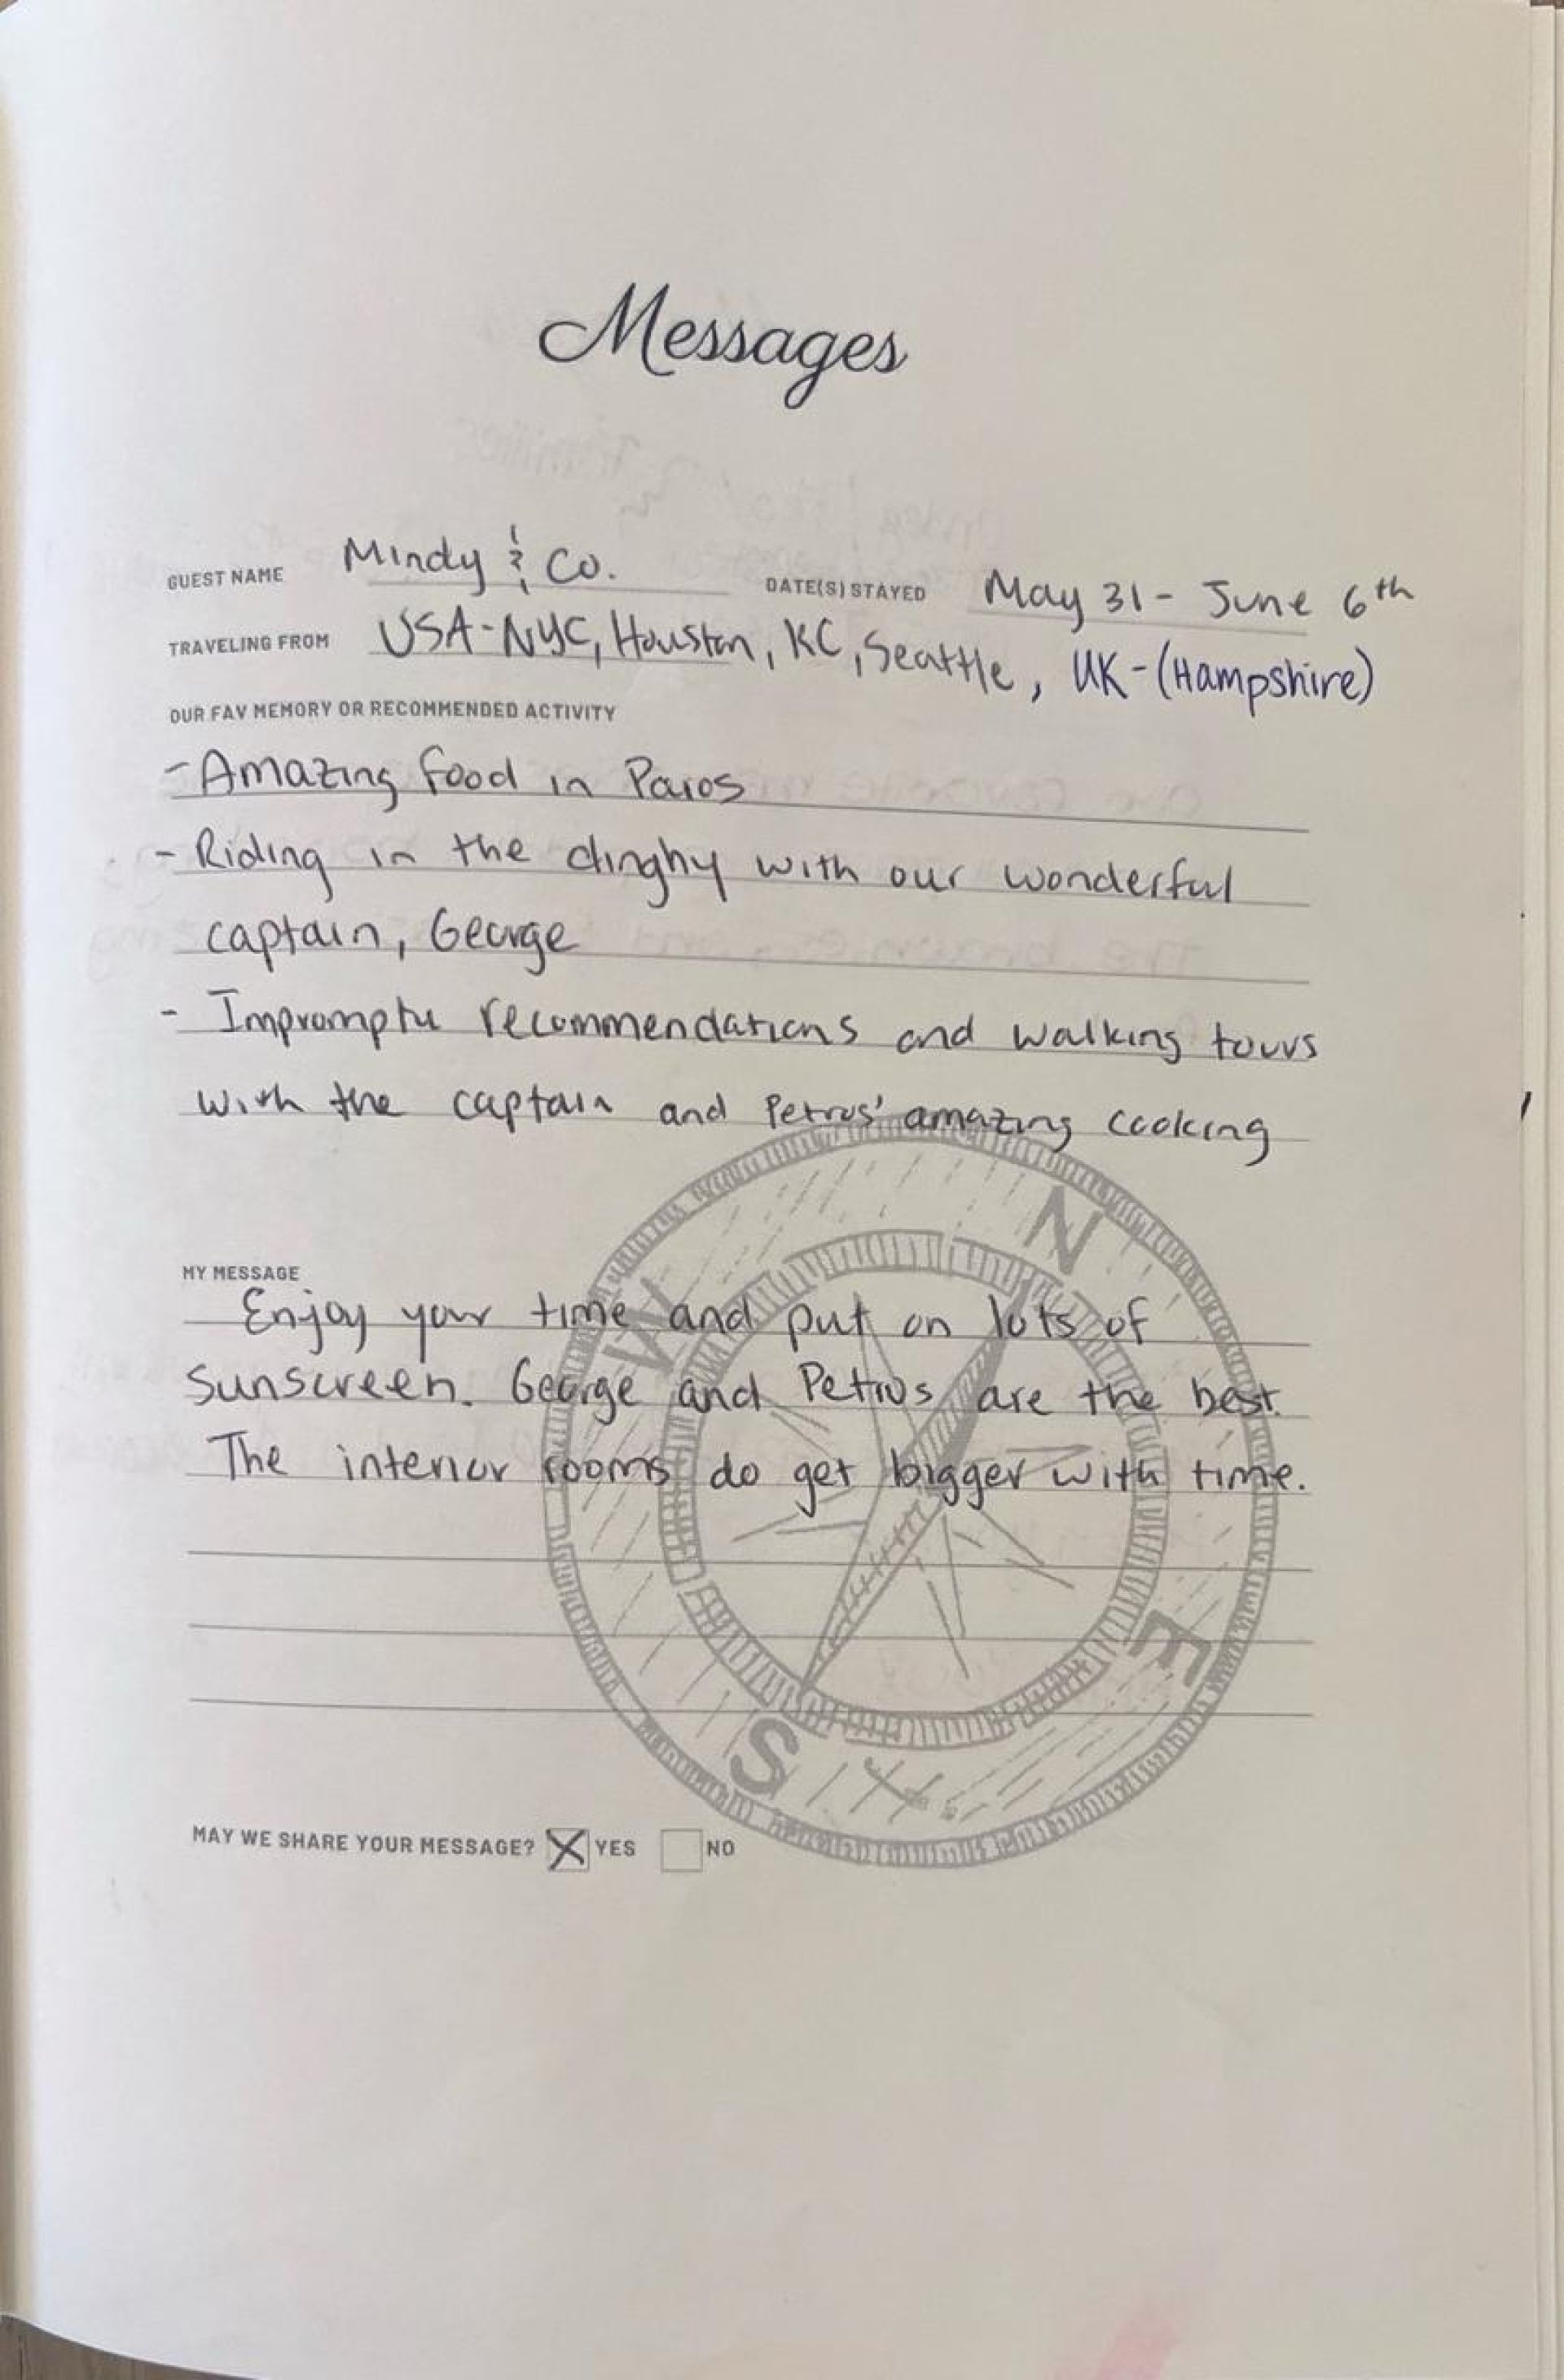 Messages
GUEST NAME Mindy & Co. DATE(S) STAYED May 31 - June 6th
TRAVELING FROM USA-NYC, Houston, KC, Seattle, UK-(Hampshire)
OUR FAV MEMORY OR RECOMMENDED ACTIVITY
- Amazing food in Paros
- Riding in the dinghy with our wonderful
captain, George
- Impromptu recommendations and walking tours
with the captain and Petros' amazing cooking
MY MESSAGE
Enjoy your time and put on lots of
sunscreen. George and Petros are the best.
The interior rooms do get bigger with time.
N
W
E
S
MAY WE SHARE YOUR MESSAGE? X YES NO